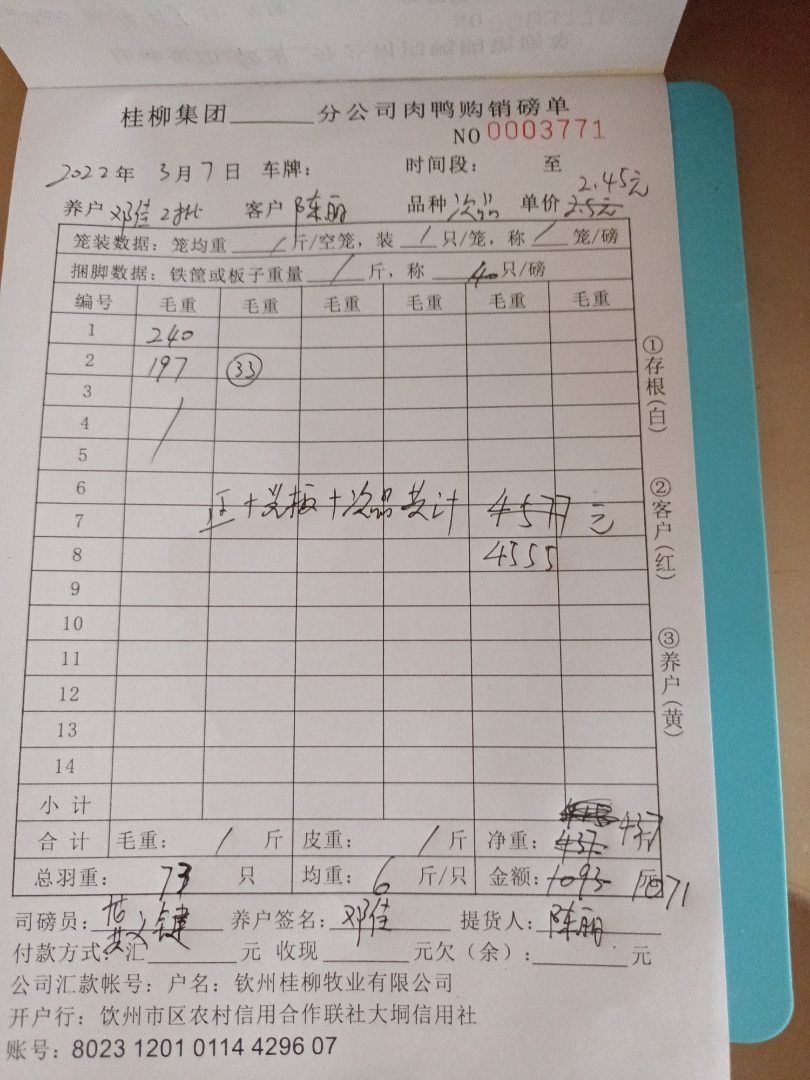 桂柳集团______分公司肉鸭购销磅单
NO 0003771
2022年 3月7日 车牌： 时间段： 至
2.45元
养户 邓佳2批 客户 陈丽 品种 次品 单价 2.5元
笼装数据：笼均重 / 斤/空笼，装 / 只/笼，称 / 笼/磅
捆脚数据：铁筐或板子重量 / 斤，称 40 只/磅
编号 毛重 毛重 毛重 毛重 毛重 毛重
1 240
2 197 33
3
4 /
5
6
正+光板+次品共计 4577元
7
8 4555
9
10
11
12
13
14
小计
合计 毛重： / 斤 皮重： / 斤 净重： 437 437斤
总羽重： 73 只 均重： 6 斤/只 金额： 1093 1071
司磅员： 键 养户签名： 邓佳 提货人： 陈丽
付款方式：汇______元 收现______元欠（余）：______元
公司汇款帐号：户名：钦州桂柳牧业有限公司
开户行：钦州市区农村信用合作联社大垌信用社
账号：8023 1201 0114 4296 07
①存根（白）
②客户（红）
③养户（黄）